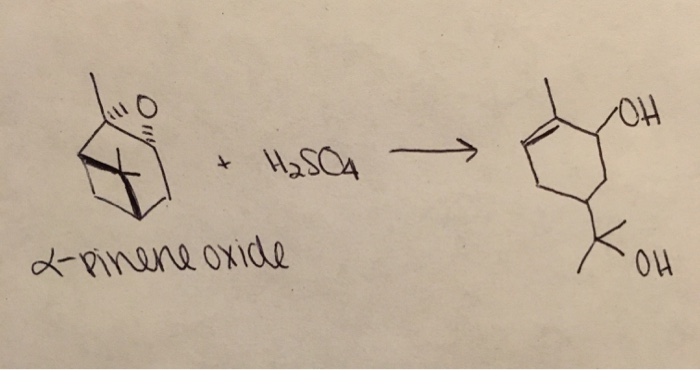 O
OH
+ H₂SO₄ →
α-pinene oxide
OH